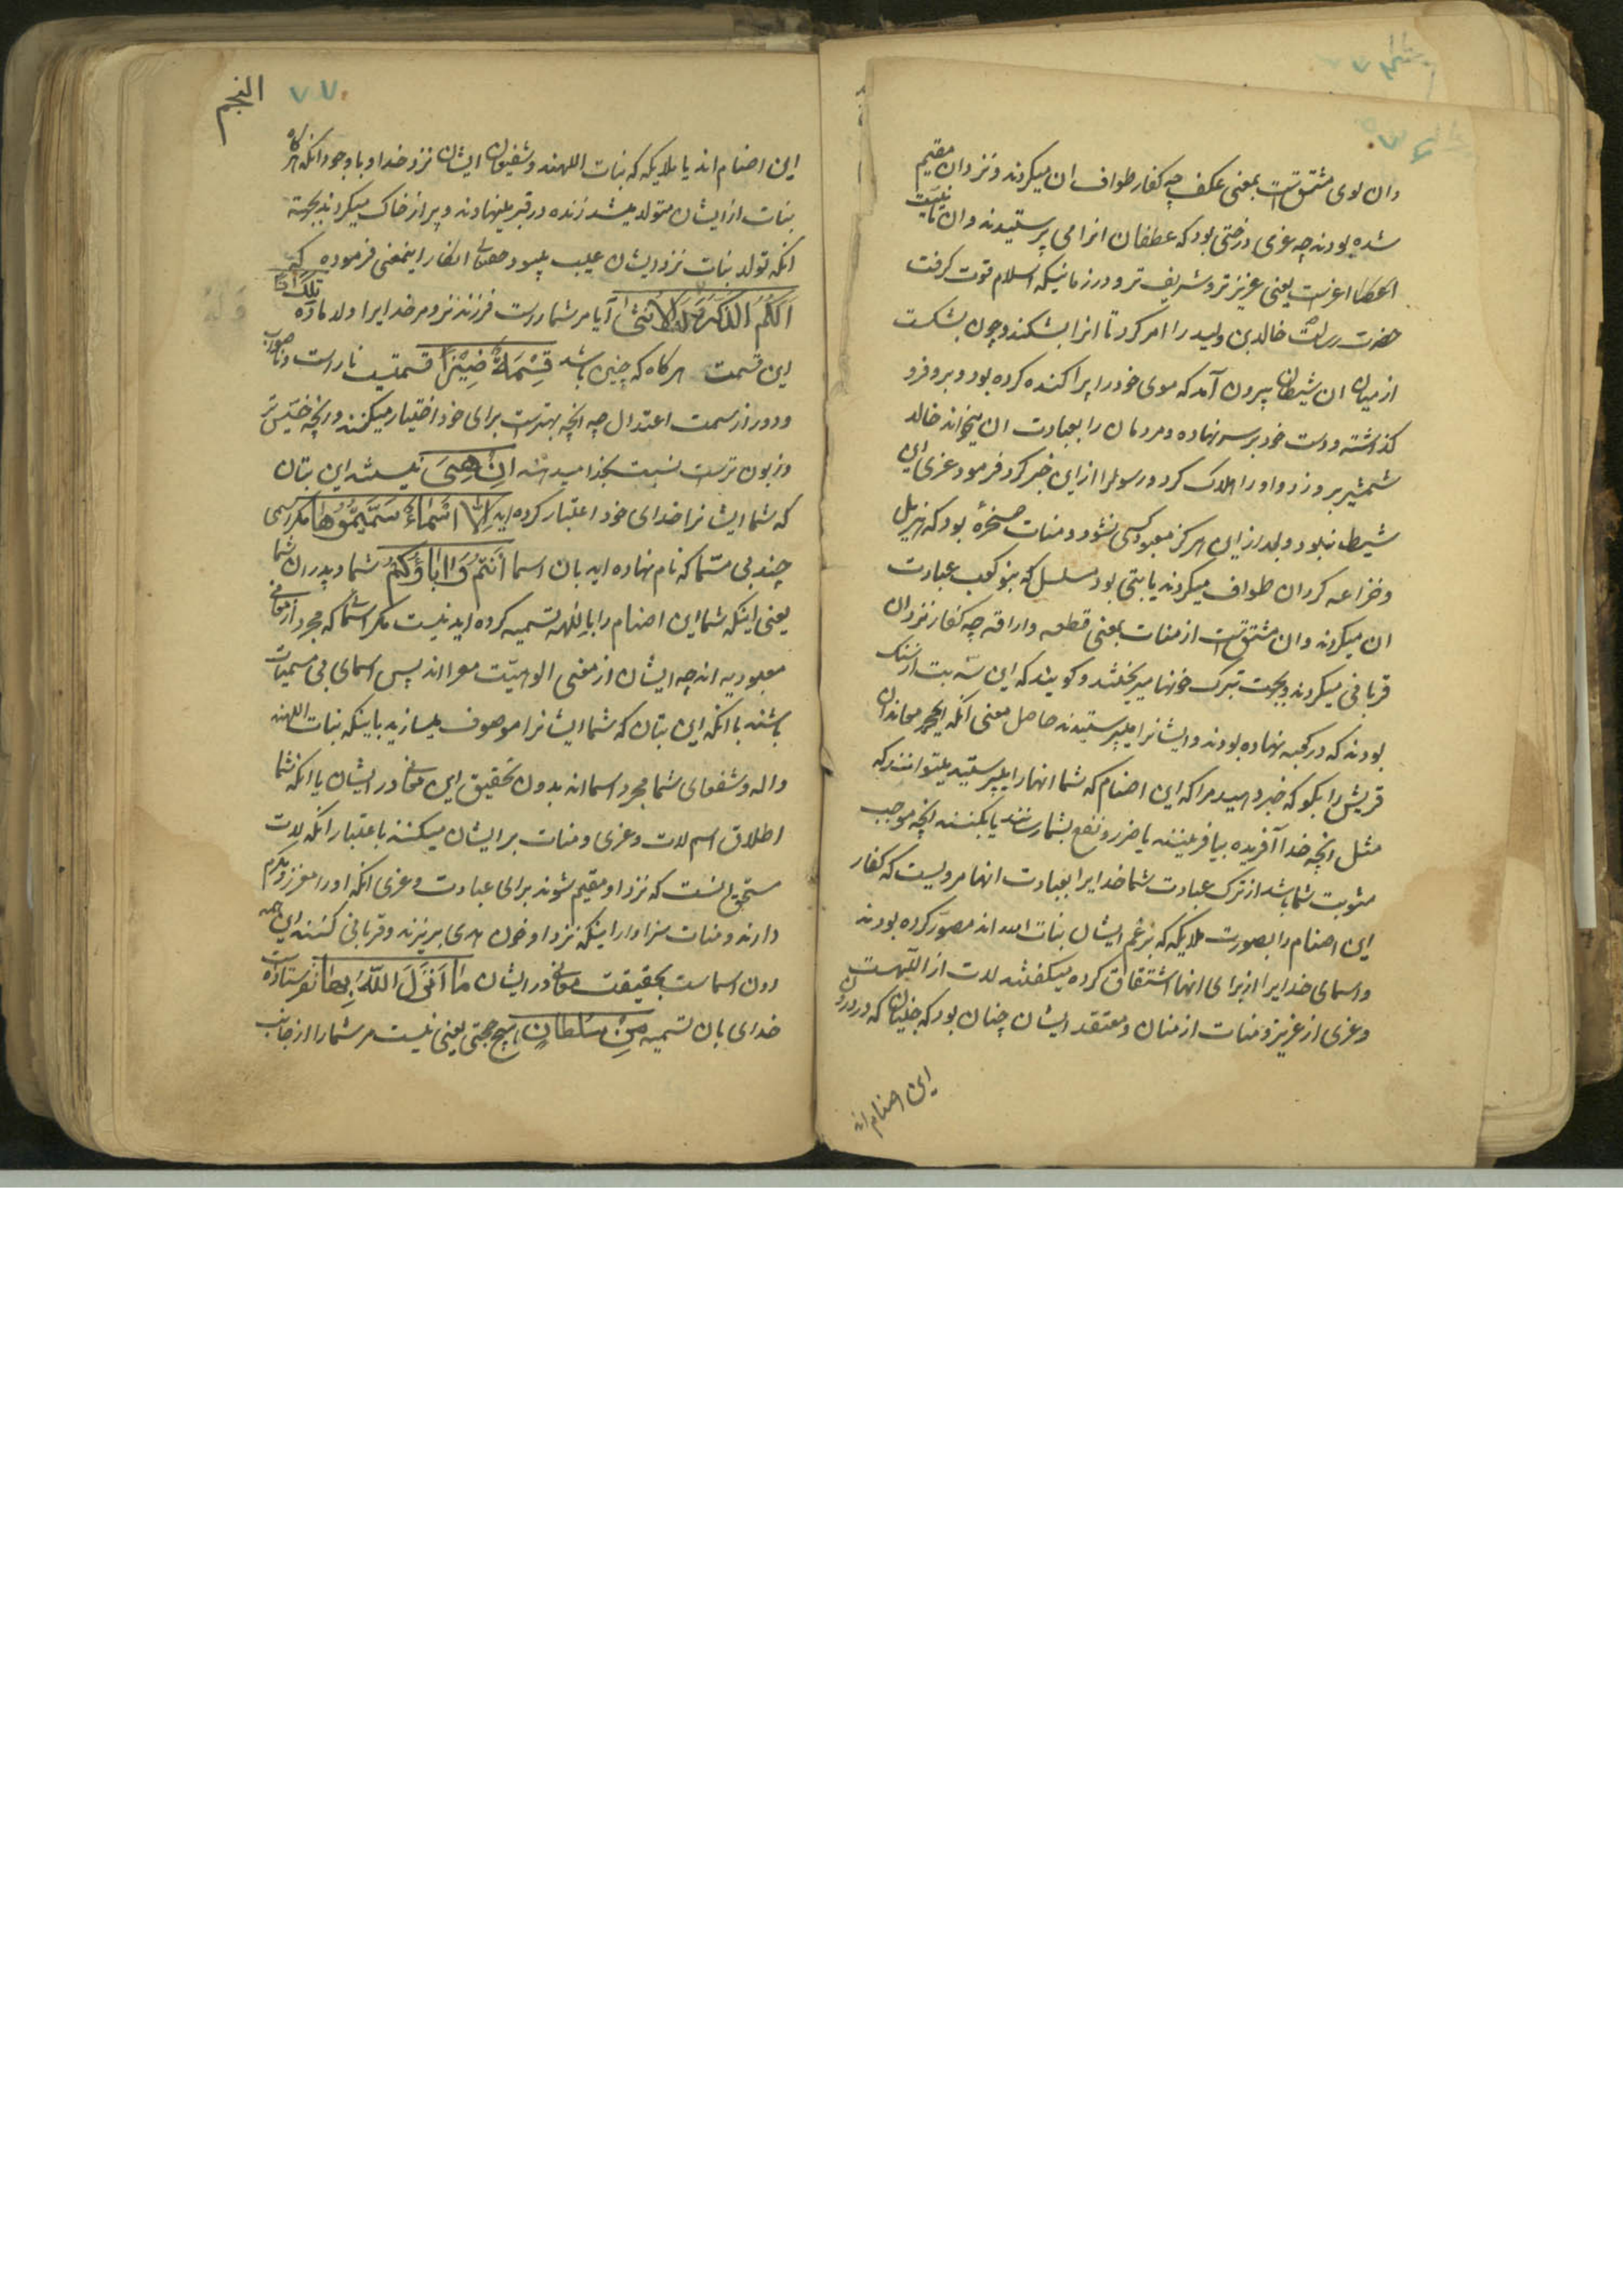 وان لوی مشتقست بمعنی عکف چه کفار طواف ان میکردند و نزد ان مقیم
شده بودند چه عزی درختی بود که غطفان انرا می پرستیدند و ان تانیث
اعزست یعنی عزیزتر و شریف تر و در زمانیکه اسلام قوت کرفت
حضرت رسالت خالد بن ولید را امر کرد تا انرا بشکند و چون بشکست
از میان ان شیطان بیرون آمد که موی خود را پراکنده کرده بود و برو فرو
کذاشته و دست خود بر سر نهاده و مردمان را بعبادت ان میخواند خالد
شمشیر برو زد و او را هلاک کرد و رسولرا از این خبر کرد فرمود عزی این
شیطان بود و بعد از این هرکز معبود کسی نشود و منات صخرهٔ بود که هزیل
و خزاعه کرد ان طواف میکردند یا بتی بود مسلسل که بنو کعب عبادت
ان میکردند و ان مشتقست از منات بمعنی قطعه و اراقه چه کفار نزد ان
قربانی میکردند و بجهت تبرک خونها میریختند و کویند که این سه بت از سنک
بودند که در کعبه نهاده بودند و ایشانرا میپرستیدند حاصل معنی انکه ای محمد معاندان
قریش را بکو که خبر دهید مرا که این اصنام که شما انها را میپرستید میتوانند که
مثل انچه خدا آفریده بیافرینند یا ضرر و نفع بشما رسانند یا بکنند انچه موجب
مثوبت شما باشد از ترک عبادت شما خدایرا بعبادت انها مرویست که کفار
این اصنام را بصورت ملایکه که بزعم ایشان بنات الله اند مصور کرده بودند
و اسمای خدایرا از برای انها اشتقاق کرده میکفتند لات از اللهست
و عزی از عزیز و منات از منان و معتقد ایشان چنان بود که جنیان که در درون
این اصنام اند
النجم
۷۷۰
این اصنام اند یا ملایکه که بنات اللهند و شفیعان ایشان نزد خدا و باوجود انکه هرکاه
بنات از ایشان متولد میشد زنده در قبر مینهادند و پر از خاک میکردند بجهته
انکه تولد بنات نزد ایشان عیب بود حقتعالی انکار اینمعنی فرموده که
اَلَكُمُ الذَّكَرُ وَلَهُ الْاُنْثٰى آیا مر شما راست فرزند نر و مر خدایرا ولد ماده تِلْكَ اِذًا
این قسمت هرکاه که چنین باشد قِسْمَةٌ ضِیْزٰى قسمتیست ناراست و ناصواب
و دور از سمت اعتدال چه انچه بهترست برای خود اختیار میکنند و انچه خسیس تر
و زبون ترست نسبت بخدا میدهند اِنْ هِیَ نیستند این بتان
که شما ایشانرا خدای خود اعتبار کرده اید اِلَّا اَسْمَاءٌ سَمَّیْتُمُوْهَا مکر اسمی
چند بی مسما که نام نهاده اید بان اسما اَنْتُمْ وَاٰبَاؤُكُمْ شما و پدران شما
یعنی اینکه شما این اصنام را بالهه تسمیه کرده اید نیست مکر اسما که مجرد از معانی
معبودیه اند چه ایشان از معنی الوهیت معرا اند پس اسمای بی مسمیات
باشند با انکه این بتان که شما ایشانرا موصوف میسازید باینکه بنات اللهند
و اله و شفعای شما مجرد اسما اند بدون تحقیق این معانی در ایشان یا انکه شما
اطلاق اسم لات و عزی و منات بر ایشان میکنند باعتبار انکه لات
مستحق انست که نزد او مقیم شوند برای عبادت و عزی انکه او را معزز و مکرم
دارند و منات سزاوار اینکه نزد او خون هدی بریزند و قربانی کنند این همه
دون اسماست بحقیقت معانی در ایشان مَا اَنْزَلَ اللّٰهُ بِهَا نفرستاده است
خدای بان تسمیه مِنْ سُلْطَانٍ هیچ حجتی یعنی نیست مر شما را از جانب